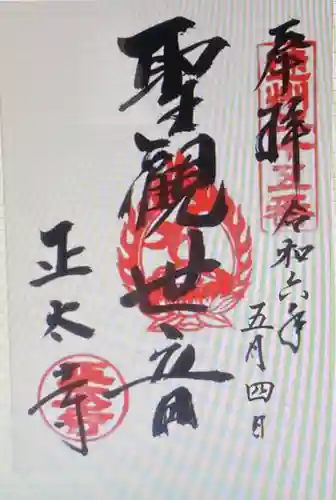 奉拝
令和六年
五月四日
聖観世音
正太寺